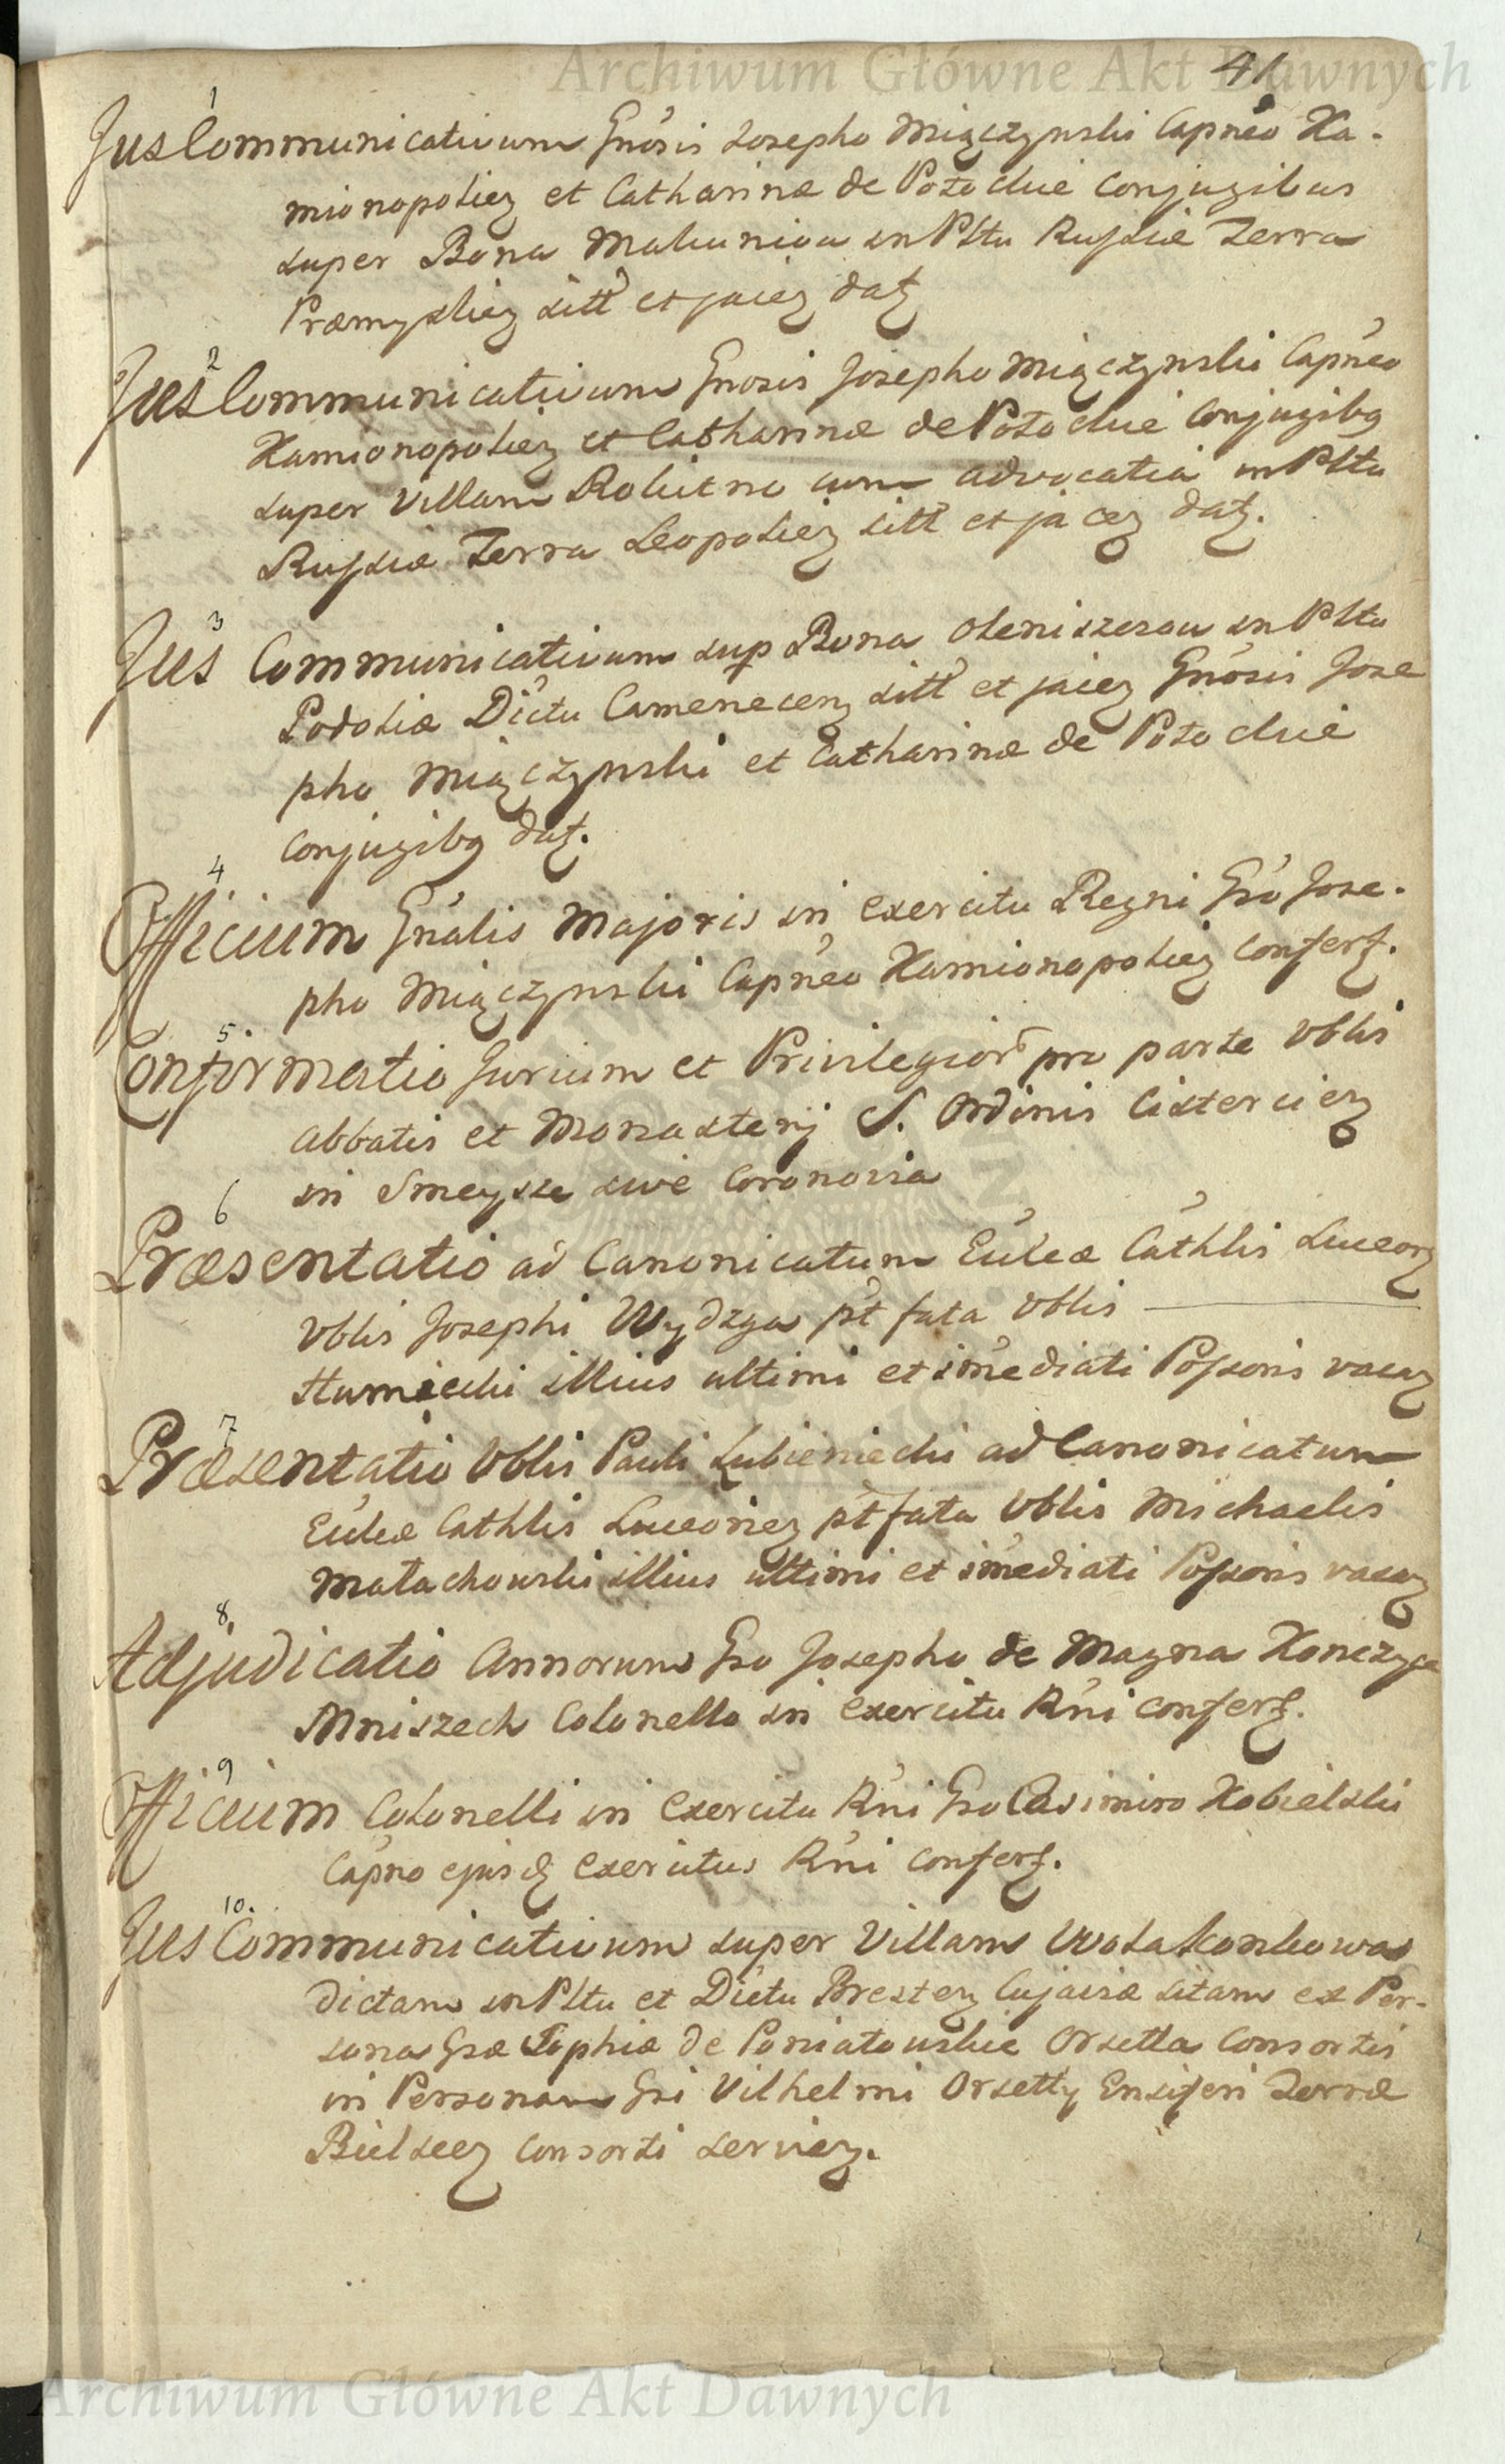 Archiwum Główne Akt Dawnych
41
1
Jus Communicativum Gnosis Josepho Miączynski Capneo Ka-
mionopoliez et Catharinæ de Potockie Conjugibus
super Bona Makuniow in Pltu Russiæ Terra
Præmysliez sitt et jacez datz
2
Jus Communicativum Gnosis Josepho Miączynski Capneo
Kamionopoliez et Catharinæ de Potockie Conjugibq
super Villam Rokitno cum advocatia in Pltu
Russiæ Terra Leopoliez sitt et jacez datz.
3
Jus Communicativum sup Bona Oleniszczou in Pltu
Podoliæ Dictu Camenecenz sitt et jacez Gnosis Jose
pho Miączynski et Catharinæ de Potockie
Conjugibq datz.
4
Officium Gnalis Majoris in Exercitu Regni Gso Jose-
pho Miączynski Capneo Kamionopoliez Conferz.
5.
Confirmatio Jurium et Privilegior pro parte Vblis
Abbatis et Monasterij S. Ordinis Cisterciez
in Smeysze sive Coronovia
6
Præsentatio ad Canonicatum Eccleæ Cathlis Luceorz
Vblis Josephi Wydzga pt fata Vblis
Humiecki illius ultimi et imediati Possoris vacaz
7
Præsentatio Vblis Pauli Lubieniecki ad Canonicatum
Eccleæ Cathlis Luceoriez pt fata Vblis Michaelis
Małachowski illius ultimi et imediati Possoris vacaz
8.
Adjudicatio Annorum Gso Josepho de Magna Konczyce
Mniszech Colonello in Exercitu Rni Conferz.
9
Officium Colonelli in Exercitu Rni Gso Casimiro Kobielski
Capno ejusdz Exercitus Rni Conferz.
10.
Jus Communicativum super Villam Wola Skarbkowa
dictam in Pltu et Dictu Brestez Cujaviæ sitam ex Per-
sona Gsæ Sophiæ de Poniatowskie Orsetta Consortis
in Personam Gsi Vilhelmi Orsetty Ensiferi Terræ
Bielscez Consorti serviez.
Archiwum Główne Akt Dawnych